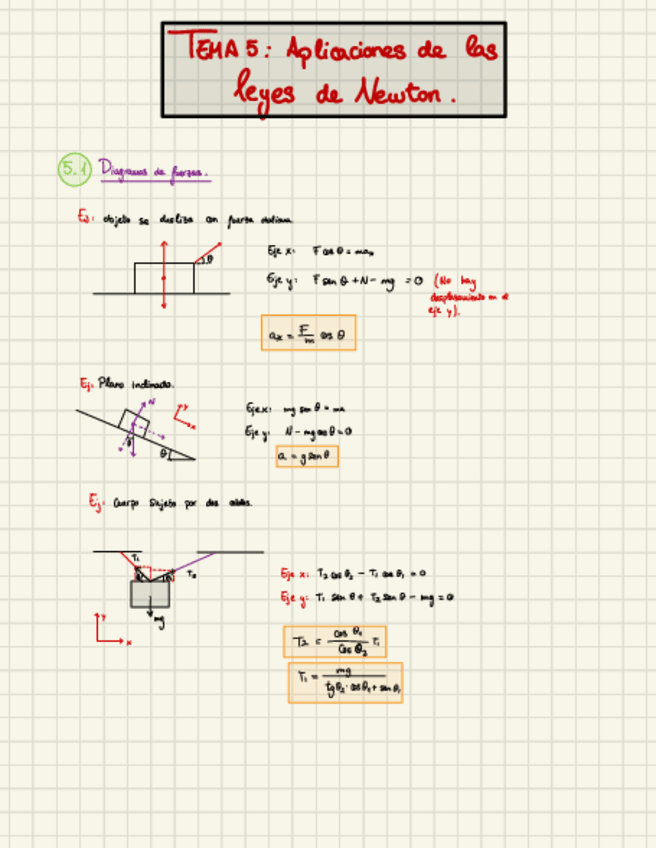 TEMA 5: Aplicaciones de las
leyes de Newton.
5.1 Diagramas de fuerzas.
Ej: objeto se desliza con fuerza
θ
Eje x: F cos θ = max
Eje y: F sen θ + N - mg = 0 (No hay
desplazamiento en el
eje y).
ax = F/m cos θ
Ej: Plano inclinado.
N
y
x
θ
θ
Eje x: mg sen θ = ma
Eje y: N - mg cos θ = 0
a = g sen θ
Ej: Cuerpo sujeto por dos cables.
T1
T2
mg
y
x
Eje x: T2 cos θ2 - T1 cos θ1 = 0
Eje y: T1 sen θ + T2 sen θ - mg = 0
T2 = cos θ1 / cos θ2 T1
T1 = mg / tg θ2 · cos θ1 + sen θ1